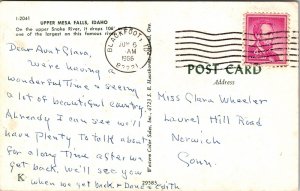 I-2041
UPPER MESA FALLS, IDAHO
On the upper Snake River, it drops 106'
one of the largest on this famous river
BLACKFOOT
JUN 6
AM
1966
POST CARD
Address
Dear Aunt Clara,
We're having a
wonderful time & seeing
a lot of beautiful country.
Already I can see we'll
have plenty to talk about
for a long time after we
get back. We'll see you
when we get back & Edith
Miss Clara Wheeler
Laurel Hill Road
Norwich
Conn.
K
Western Color Sales, Inc.
29585